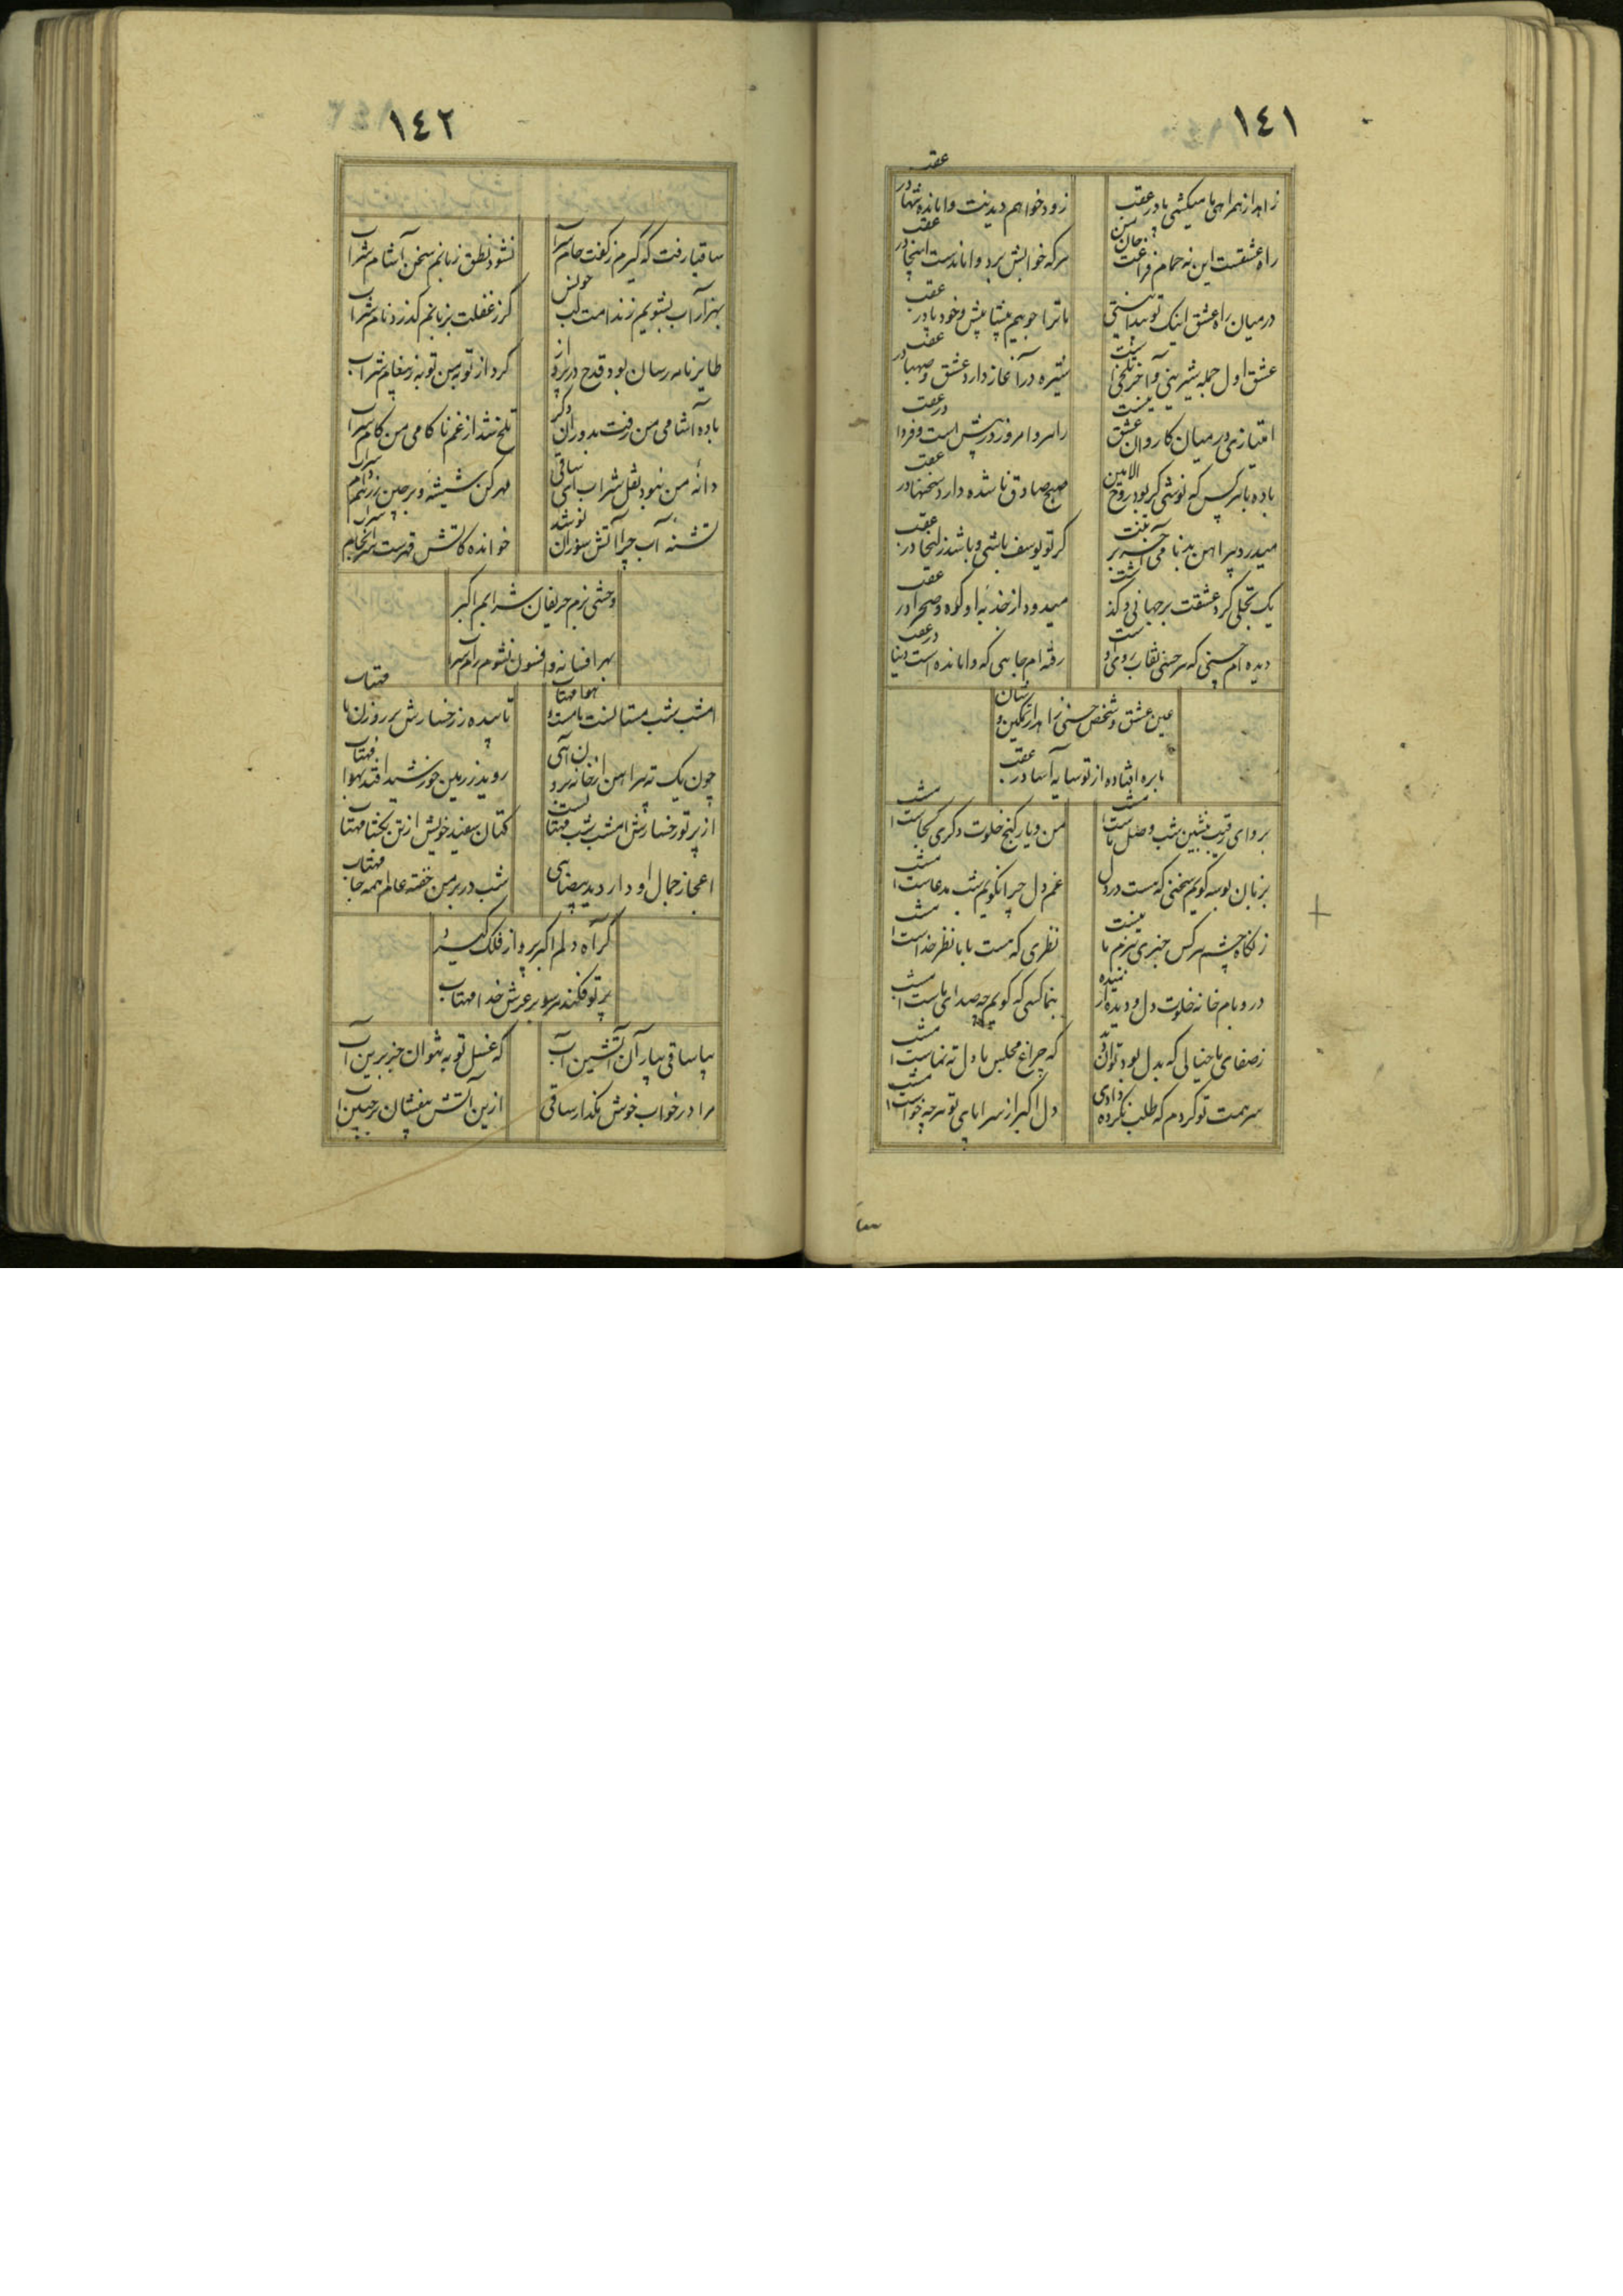 ١٤١
زاهد از همراهی ما میکشی پا در عقب
زود خواهم دیدنت وامانده تنها در عقب
راه عشقست این نه حمام فراغت جان من
هرکه خوابش برد واماندست اینجا در عقب
درمیان راه عشق اینک تو پیدا نیستی
ما ترا جوییم پیشاپیش و خود پا در عقب
عشق اول جمله شیرینی و آخر تلخی است
نشره در آغاز دارد عشق و صهبا در عقب
امتیازی در میان کاروان عشق نیست
راهرو امروز در پیش است و فردا در عقب
باده با هرکس که نوشی گر بود روح الامین
صبح صادق ناشده دارد سخنها در عقب
میدرد پیراهن بدنامی آخر بر تنت
گر تو یوسف باشی و باشد زلیخا در عقب
یک تجلی کرد عشقت بر جهانی و گذشت
میدود از جذبه او کوه و صحرا در عقب
دیده ام حسنی که هر حسنی نقاب روی اوست
رفته ام جایی که وامانده است دنیا در عقب
عین عشق و شخص حسنی زاهدا تمکین و شان
با بره افتاده از تو سایه آسا در عقب
برو ای رقیب بنشین شب وصل ماست امشب
من و یار کنج خلوت دگری کجاست امشب
بزبان بوسه گویم سخنی که هست در دل
غم دل چرا نگویم شب مدعاست امشب
ز نگاه چشم هرکس خبری ببزم ما نیست
نظری که هست با ما نظر خداست امشب
در و بام خانه خلوت دل و دیده آرمیده
بنما کسی که گویم چه صدای پاست امشب
ز صفای ما خیالی که بدل بود توان دید
که چراغ مجلس ما دل ته نماست امشب
سر همت تو گردم که طلب نکرده دادی
دل اکبر از سراپای تو هرچه خواست امشب
١٤٢
ساقیا رفت که گیرم ز کفت جام شراب
نشود نطق زبانم سخن آشام شراب
بهزار آب بشویم ز ندامت لب خویش
گر ز غفلت بزبانم گذرد نام شراب
طایر نامه رسان بود قدح در بزم
کرد از توبه من توبه ز پیغام شراب
باده آشامی من رفت بدوران دگر
تلخ شد از غم ناکامی من کام شراب
دانه من نبود نقل شراب ای ساقی
مهر کن شیشه و برچین ز رهم دام شراب
تشنه آب چرا آتش سوزان نوشد
خوانده کاتش قهرست سرانجام شراب
وحشی بزم حریفان شرابم اکبر
بهر افسانه و افسون نشوم رام شراب
امشب شب مستانست بامست و هوا مهتاب
تابیده ز رخسارش بر روزن ما مهتاب
چون یک ته پیراهن از خانه برون آیی
روید ز زمین خورشید افتد بهوا مهتاب
از پرتو رخسارش امشب شب مهتابست
کتان سفید خویش از تن بگشا مهتاب
اعجاز جمال او دارد ید بیضایی
شب در بر من خفته عالم همه جا مهتاب
گر آه دلم اکبر پرواز فلک گیرد
پرتو فکند هر سو بر عرش خدا مهتاب
بیا ساقی بیار آن آتشین آب
که غسل توبه نتوان جز برین آب
مرا در خواب خوش مگذار ساقی
ازین آتش بیفشان بر جبین آب